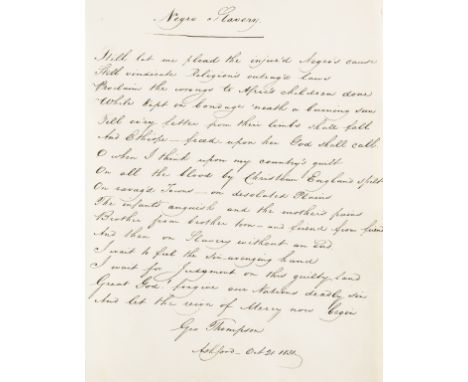 Negro Slavery.
Still let us plead the injur'd Negro's cause
Still vindicate Religion's outrag'd laws
Proclaim the wrongs to Afric's children done
While kept in bondage 'neath a burning sun
Till every fetter from their limbs shall fall
And Ethiope – freed upon her God shall call
O when I think upon my country's guilt
On all the blood by Christian England spilt
On ravag'd Towns – on desolated Plains
The infants anguish and the mother's pains
Brother from brother torn – and friend from friend
And then on Slavery without an end
I wait to feel the Sin-avenging hand
I wait for Judgment on this guilty land
Great God! forgive our Nations deadly sin
And let the reign of Mercy now begin
Geo Thompson
Ashford – Oct 21